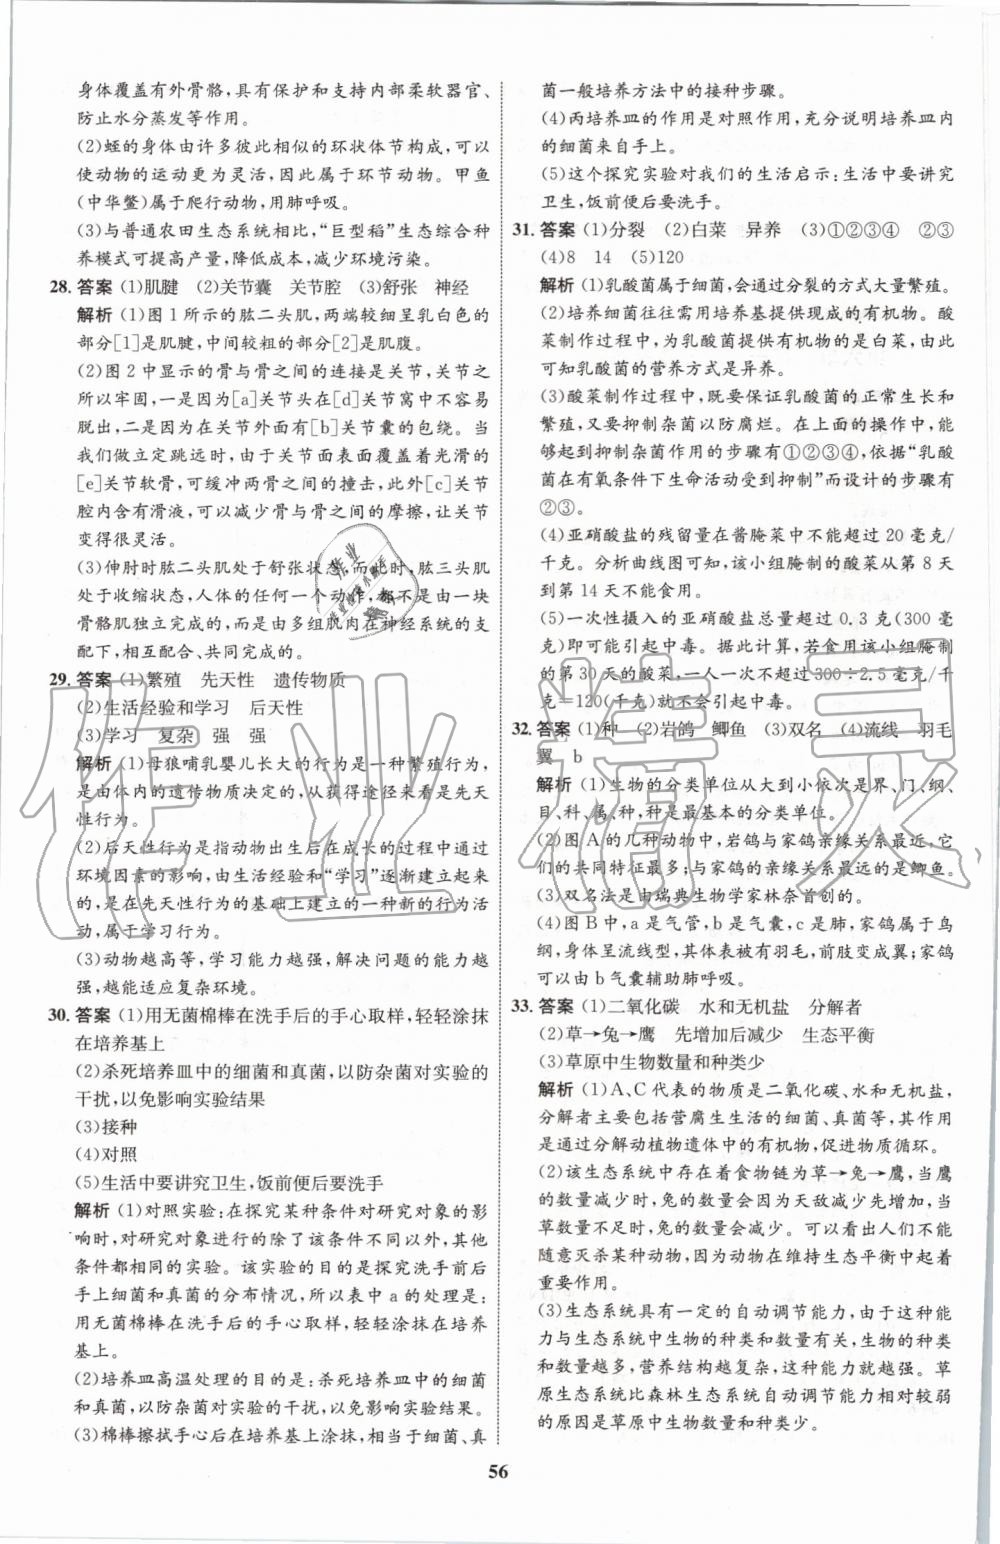 身体覆盖有外骨骼,具有保护和支持内部柔软器官、
防止水分蒸发等作用。
(2)蛭的身体由许多彼此相似的环状体节构成,可以
使动物的运动更为灵活,因此属于环节动物。甲鱼
(中华鳖)属于爬行动物,用肺呼吸。
(3)与普通农田生态系统相比,“巨型稻”生态综合种
养模式可提高产量,降低成本,减少环境污染。
28. 答案 (1)肌腱 (2)关节囊 关节腔 (3)舒张 神经
解析 (1)图1所示的肱二头肌,两端较细呈乳白色的
部分[1]是肌腱,中间较粗的部分[2]是肌腹。
(2)图2中显示的骨与骨之间的连接是关节,关节之
所以牢固,一是因为[a]关节头在[d]关节窝中不容易
脱出,二是因为在关节外面有[b]关节囊的包绕。当
我们做立定跳远时,由于关节面表面覆盖着光滑的
[e]关节软骨,可缓冲两骨之间的撞击,此外[c]关节
腔内含有滑液,可以减少骨与骨之间的摩擦,让关节
变得很灵活。
(3)伸肘时肱二头肌处于舒张状态,而肱三头肌处
于收缩状态,人体的任何一个动作,都不是由一块
骨骼肌独立完成的,而是由多组肌肉在神经系统的支
配下,相互配合、共同完成的。
29. 答案 (1)繁殖 先天性 遗传物质
(2)生活经验和学习 后天性
(3)学习 复杂 强 强
解析 (1)母狼哺乳婴儿长大的行为是一种繁殖行为,
是由体内的遗传物质决定的,从获得途径来看是先天
性行为。
(2)后天性行为是指动物出生后在成长的过程中通过
环境因素的影响,由生活经验和“学习”逐渐建立起来
的,是在先天性行为的基础上建立的一种新的行为活
动,属于学习行为。
(3)动物越高等,学习能力越强,解决问题的能力越
强,越能适应复杂环境。
30. 答案 (1)用无菌棉棒在洗手后的手心取样,轻轻涂抹
在培养基上
(2)杀死培养皿中的细菌和真菌,以防杂菌对实验的
干扰,以免影响实验结果
(3)接种
(4)对照
(5)生活中要讲究卫生,饭前便后要洗手
解析 (1)对照实验:在探究某种条件对研究对象的影
响时,对研究对象进行的除了该条件不同以外,其他
条件都相同的实验。该实验的目的是探究洗手前后
手上细菌和真菌的分布情况,所以表中a的处理是:
用无菌棉棒在洗手后的手心取样,轻轻涂抹在培养
基上。
(2)培养皿高温处理的目的是:杀死培养皿中的细菌
和真菌,以防杂菌对实验的干扰,以免影响实验结果。
(3)棉棒擦拭手心后在培养基上涂抹,相当于细菌、真
菌一般培养方法中的接种步骤。
(4)两培养皿的作用是对照作用,充分说明培养皿内
的细菌来自手上。
(5)这个探究实验对我们的生活启示:生活中要讲究
卫生,饭前便后要洗手。
31. 答案 (1)分裂 (2)白菜 异养 (3)①②③④ ②③
(4)8 14 (5)120
解析 (1)乳酸菌属于细菌,会通过分裂的方式大量繁殖。
(2)培养细菌往往需用培养基提供现成的有机物。酸
菜制作过程中,为乳酸菌提供有机物的是白菜,由此
可知乳酸菌的营养方式是异养。
(3)酸菜制作过程,既要保证乳酸菌的正常生长和
繁殖,又要抑制杂菌以防腐烂。在上面的操作中,能
够起到抑制杂菌作用的步骤有①②③④,依据“乳酸
菌在有氧条件下生命活动受到抑制”而设计的步骤有
②③。
(4)亚硝酸盐的残留量在酱腌菜中不能超过20毫克/
千克。分析曲线图可知,该小组腌制的酸菜从第8天
到第14天不能食用。
(5)一次性摄入的亚硝酸盐总量超过0.3克(300毫
克)即可能引起中毒。以此计算,若食用该小组腌制
的第30天的酸菜,一人一次不超过300÷2.5毫克/千
克=120(千克)就不会引起中毒。
32. 答案 (1)种 (2)岩鸽 鲫鱼 (3)双名 (4)流线 羽毛
翼 b
解析 (1)生物的分类单位从大到小依次是界、门、纲、
目、科、属、种,种是最基本的分类单位。
(2)图A的几种动物中,岩鸽与家鸽亲缘关系最近,它
们的共同特征最多;与家鸽的亲缘关系最远的是鲫鱼。
(3)双名法是由瑞典生物学家林奈首创的。
(4)图B中,a是气管,b是气囊,c是肺,家鸽属于鸟
纲,身体呈流线型,其体表被有羽毛,前肢变成翼;家鸽
可以由b气囊辅助肺呼吸。
33. 答案 (1)二氧化碳 水和无机盐 分解者
(2)草→兔→鹰 先增加后减少 生态平衡
(3)草原中生物数量和种类少
解析 (1)A、C代表的物质是二氧化碳、水和无机盐,
分解者主要包括营腐生生活的细菌、真菌等,其作用
是通过分解动植物遗体中的有机物,促进物质循环。
(2)该生态系统中存在着食物链为草→兔→鹰,当鹰
的数量减少时,兔的数量会因为天敌减少先增加,当草
数量不足时,兔的数量又减少。可以看出人们不能
随意灭杀某种动物,因为动物在维持生态平衡中起着
重要作用。
(3)生态系统具有一定的自动调节能力,由于这种能
力与生态系统中生物的种类和数量有关,生物的种类
和数量越多,营养结构越复杂,这种能力就越强。草
原生态系统比森林生态系统自动调节能力相对较弱
的原因是草原中生物数量和种类少。
56
作业精灵